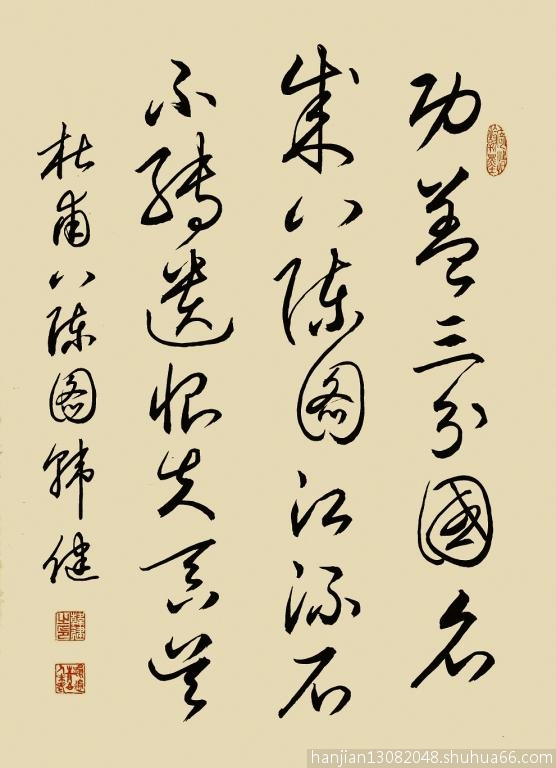 功盖三分國名
成八陣圖江流石
不轉遺恨失吞吴
杜甫八陣圖韩健
hanjian13082048.shuhua66.com